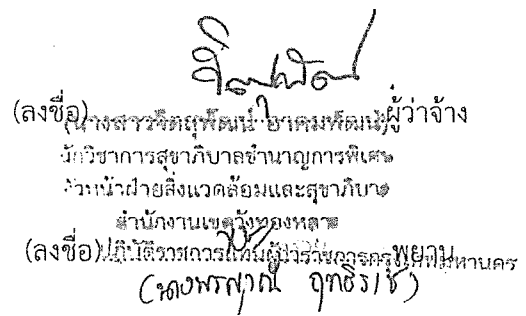 (ลงชื่อ) ผู้ว่าจ้าง
(นางสาวจิตสุพัฒน์ อาคมพัฒน์)
นักวิชาการสุขาภิบาลชำนาญการพิเศษ
หัวหน้าฝ่ายสิ่งแวดล้อมและสุขาภิบาล
สำนักงานเขตวังทองหลาง
(ลงชื่อ) พยาน
ปฏิบัติราชการแทนผู้ว่าราชการกรุงเทพมหานคร